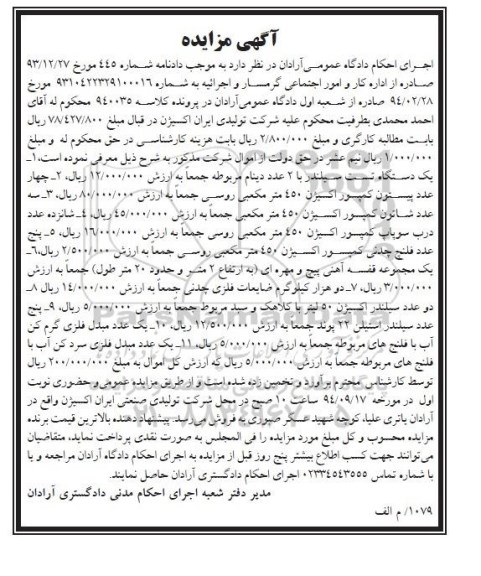 آگهی مزایده
اجرای احکام دادگاه عمومی‌آرادان در نظر دارد به موجب دادنامه شماره ۴۴۵ مورخ ۹۳/۱۲/۲۷
صادره از اداره کار و امور اجتماعی گرمسار و اجرائیه به شماره ۹۳۱۰۴۲۲۳۲۹۱۰۰۰۱۶ مورخ
۹۴/۰۲/۲۸ صادره از شعبه اول دادگاه عمومی‌آرادان در پرونده کلاسه ۹۴۰۰۳۵ محکوم له آقای
احمد محمدی بطرفیت محکوم علیه شرکت تولیدی ایران اکسیژن در قبال مبلغ ۷۸/۴۲۷/۸۰۰ ریال
بابت مطالبه کارگری و مبلغ ۲/۸۰۰/۰۰۰ ریال بابت هزینه کارشناسی در حق محکوم له و مبلغ
۱/۰۰۰/۰۰۰ ریال نیم عشر در حق دولت از اموال شرکت مذکور به شرح ذیل معرفی نموده است، ۱ـ
یک دستگاه تست سیلندر با ۲ عدد دینام مربوطه جمعاً به ارزش ۱۲/۰۰۰/۰۰۰ ریال، ۲ـ چهار
عدد پیستون کمپرسور اکسیژن ۴۵۰ متر مکعبی روسی جمعاً به ارزش ۸۰/۰۰۰/۰۰۰ ریال، ۳ـ سه
عدد شاتون کمپرسور اکسیژن ۴۵۰ متر مکعبی جمعاً به ارزش ۴۵/۰۰۰/۰۰۰ ریال، ۴ـ شانزده عدد
درب سوپاپ کمپرسور اکسیژن ۴۵۰ متر مکعبی روسی جمعاً به ارزش ۱۶/۰۰۰/۰۰۰ ریال، ۵ـ پنج
عدد فلنچ چدنی کمپرسور اکسیژن ۴۵۰ متر مکعبی روسی جمعاً به ارزش ۲/۵۰۰/۰۰۰ ریال، ۶ـ
یک مجموعه قفسه آهنی پیچ و مهره ای (به ارتفاع ۲ متر و حدود ۲۰ متر طول) جمعاً به ارزش
۳/۰۰۰/۰۰۰ ریال، ۷ـ دو هزار کیلوگرم ضایعات فلزی چدنی جمعاً به ارزش ۱۴/۰۰۰/۰۰۰ ریال ۸ـ
دو عدد سیلندر اکسیژن ۵۰ لیتر با کلاهک و سبد مربوط جمعاً به ارزش ۵/۰۰۰/۰۰۰ ریال، ۹ـ پنج
عدد سیلندر استیلن ۲۲ پوند جمعاً به ارزش ۱۲/۵۰۰/۰۰۰ ریال، ۱۰ـ یک عدد مبدل فلزی گرم کن
آب با فلنج های مربوطه جمعاً به ارزش ۵/۰۰۰/۰۰۰ ریال، ۱۱ـ یک عدد مبدل فلزی سرد کن آب با
فلنج های مربوطه جمعاً به ارزش ۵/۰۰۰/۰۰۰ ریال که ارزش کل اموال به مبلغ ۲۰۰/۰۰۰/۰۰۰ ریال
توسط کارشناس محترم برآورد و تخمین زده شده است و از طریق مزایده عمومی و حضوری نوبت
اول در مورخه ۹۴/۰۹/۱۷ ساعت ۱۰ صبح در محل شرکت تولیدی صنعتی ایران اکسیژن واقع در
آرادان یاتری علیا، کوچه شهید عسگر صبوری به فروش می‌رسد. پیشنهاد دهنده بالاترین قیمت برنده
مزایده محسوب و کل مبلغ مورد مزایده را فی المجلس به صورت نقدی پرداخت نماید، متقاضیان
می‌توانند جهت کسب اطلاع بیشتر پنج روز قبل از مزایده به اجرای احکام دادگاه آرادان مراجعه و یا
با شماره تماس ۰۲۳۳۴۵۴۳۵۵۵ اجرای احکام دادگستری آرادان حاصل نمایند.
مدیر دفتر شعبه اجرای احکام مدنی دادگستری آرادان
۱۰۷۹/ م الف